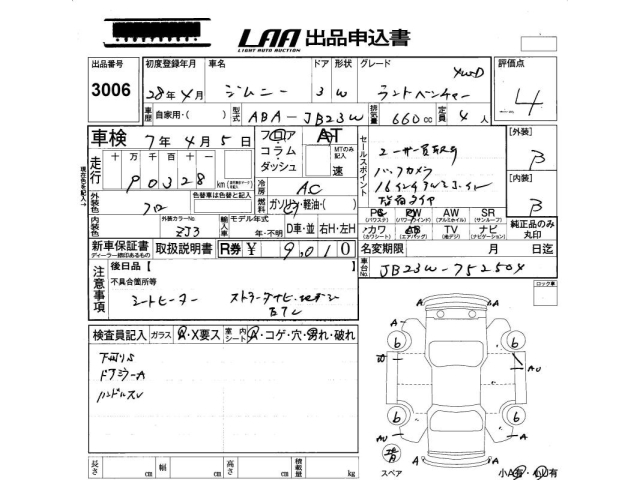 LAA 出品申込書
LIGHT AUTO AUCTION
出品番号 初度登録年月 車名 ドア 形状 グレード 評価点
3006 28年4月 ジムニー 3 W ランドベンチャー 4WD 4
車歴 自家用・( ) 型式 ABA-JB23W 排気量 660cc 定員 4人
車検 7年4月5日 フロア AT
コラム・ダッシュ MTのみ記入 速
走行 十万千百十 90328 km
冷房 AC
セールスポイント
ユーザー買取り
バックカメラ
16インチアルミホイル
[外装] B
[内装] B
外装色 色替車は色替と記入 燃料 ガソリン・軽油・( )
外装カラーNo. ZJ3
輸入車 モデル年式 年・不明 D車・並 右H・左H
PS PW AW SR
(パワステ) (パワーウインド) (アルミホイル) (サンルーフ)
カワ AB TV ナビ
(カワシート) (エアバッグ) (地デジ) (ナビゲーション)
純正品のみ丸印
新車保証書 取扱説明書 R券 ¥ 9,010
ディーラー捺印あるもの
名変期限 月 日迄
車台No. JB23W-752504
ロック車
注意事項
後日品【
不具合箇所等
シートヒーター
検査員記入 ガラス A・X要ス 室内シート A・コゲ・穴・汚れ・破れ
下回りS
ドアミラーA
ハンドルスレ
A A
6 6
A AU
6 6
AU A
A A
スペア
小A有・小U有
長さ cm 幅 cm 高さ cm 積載量 kg